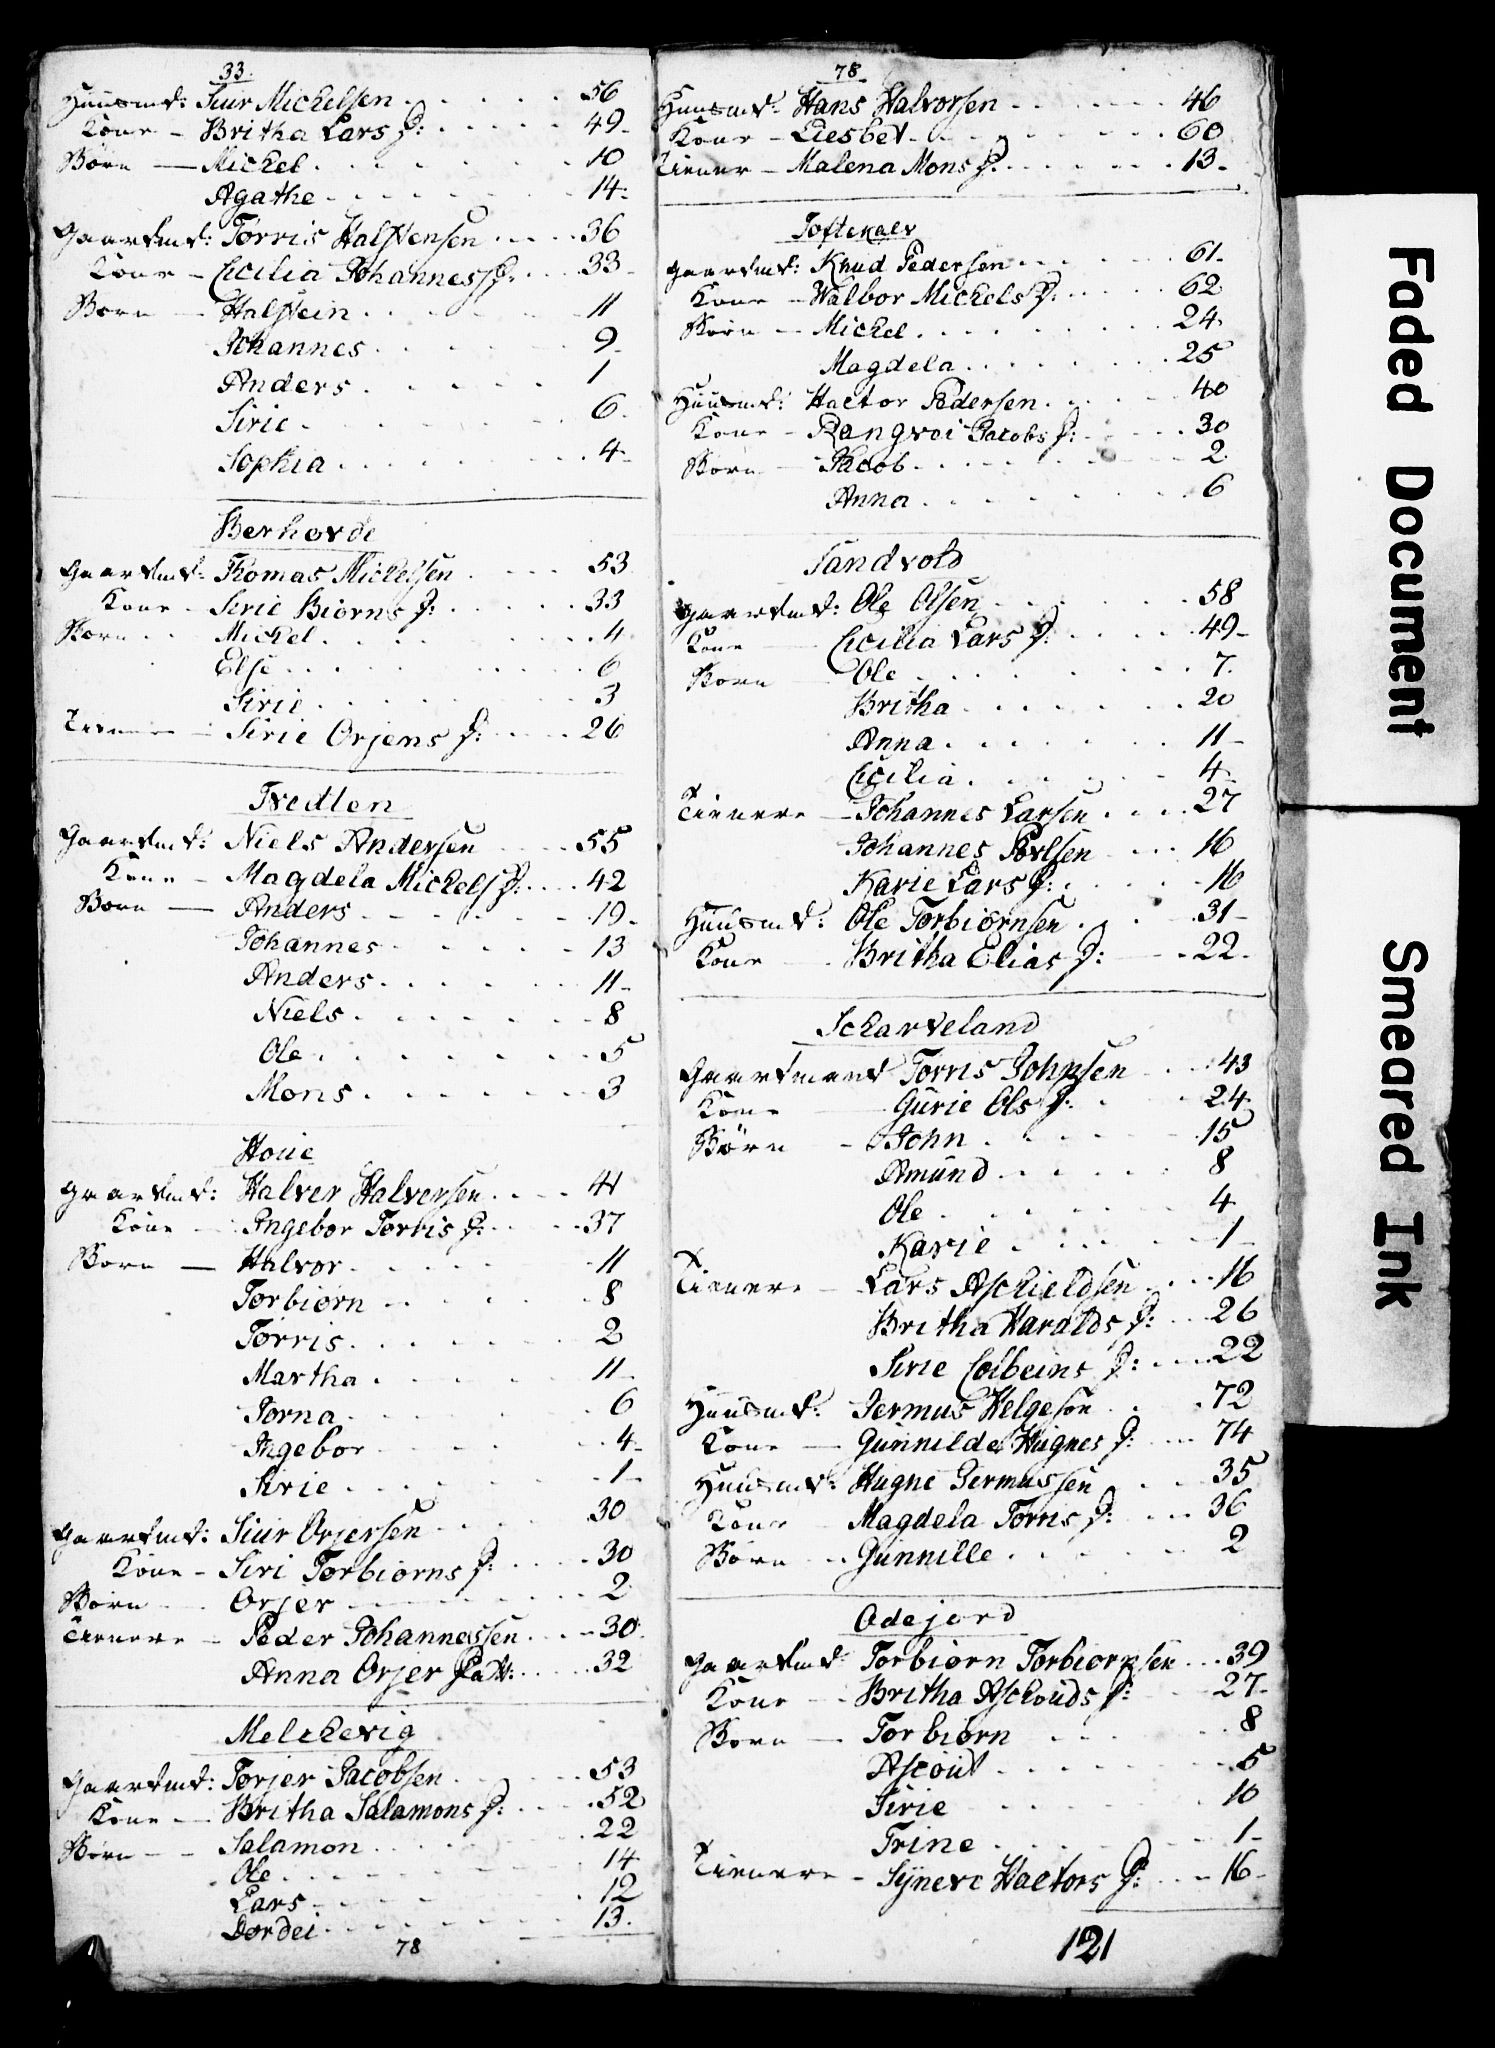 33.
Huusmd: Siur Michelsen 56
Kone - Britha Lars D: 49
Børn - Michel 10
Agathe 14
Gaardmd: Torris Halstensen 36
Kone - Cicilia Johannes D: 33
Børn - Halstein 11
Johannes 9
Anders 1
Sirie 6
Sophia 4
Berhovde
Gaardmd: Thomas Michelsen 53
Kone - Sirie Biørns D: 33
Børn Michel 4
Else 6
Sirie 3
Tienere - Sirie Orjens D: 26
Tvedten
Gaardmd: Niels Andersen 55
Kone - Magdela Michels D: 42
Børn - Anders 19
Johannes 13
Anders 11
Niels 8
Ole 5
Mons 3
Houe
Gaardmd: Halver Halversen 41
Kone - Ingebor Torris D: 37
Børn - Halvor 11
Torbiørn 8
Torris 2
Martha 11
Jorna 6
Ingebor 4
Sirie 1
Gaardmd: Siur Orjersen 30
Kone - Siri Torbiørns D: 30
Børn - Orjer 2
Tienere - Peder Johannessen 30
Anna Orjer 32
Melchevig
Gaardmd: Torjer Jacobsen 53
Kone - Britha Salamons D: 52
Børn - Salamon 22
Ole 14
Lars 12
Dordei 13
78
78
Huusmd: Hans Halvorsen 46
Kone - Liesbet 60
Tiener - Malena Mons D: 13
Toftekalv
Gaardmd: Knud Pedersen 61
Kone - Walbor Michels D: 62
Børn - Michel 24
Magdela 25
Huusmd: Hactor Pedersen 40
Kone - Rangvei Jacobs D: 30
Børn - Jacob 2
Anna 6
Sandvold
Gaardmd: Ole Olsen 58
Kone - Cicilia Lars D: 49
Børn - Ole 7
Britha 20
Anna 11
Cicilia 4
Tienere - Johannes Larsen 27
Johannes Povlsen 16
Karie Lars D: 16
Huusmd: Ole Torbiørnsen 31
Kone - Britha Elias D: 22
Scharveland
Gaardmand Torris Johnsen 43
Kone - Gurie Ols D: 24
Børn - John 15
Amund 8
Ole 4
Karie 1
Tienere - Lars Aschieldsen 16
Britha Haralds D: 26
Sirie Colbeins D: 22
Huusmd: Jermus Helgesen 72
Kone - Gunnilde Hugnes D: 74
Huusmd: Hugne Jermussen 35
Kone - Magdela Torris D: 36
Børn - Gunnille 2
Odejord
Gaardmd: Torbiørn Torbiørnsen 39
Kone - Britha Aschouds D: 27
Børn - Torbiørn 8
Ascout 5
Sirie 10
Trine 1
Tienere - Syneve Hactors D: 16
121
Faded Document
Smeared Ink